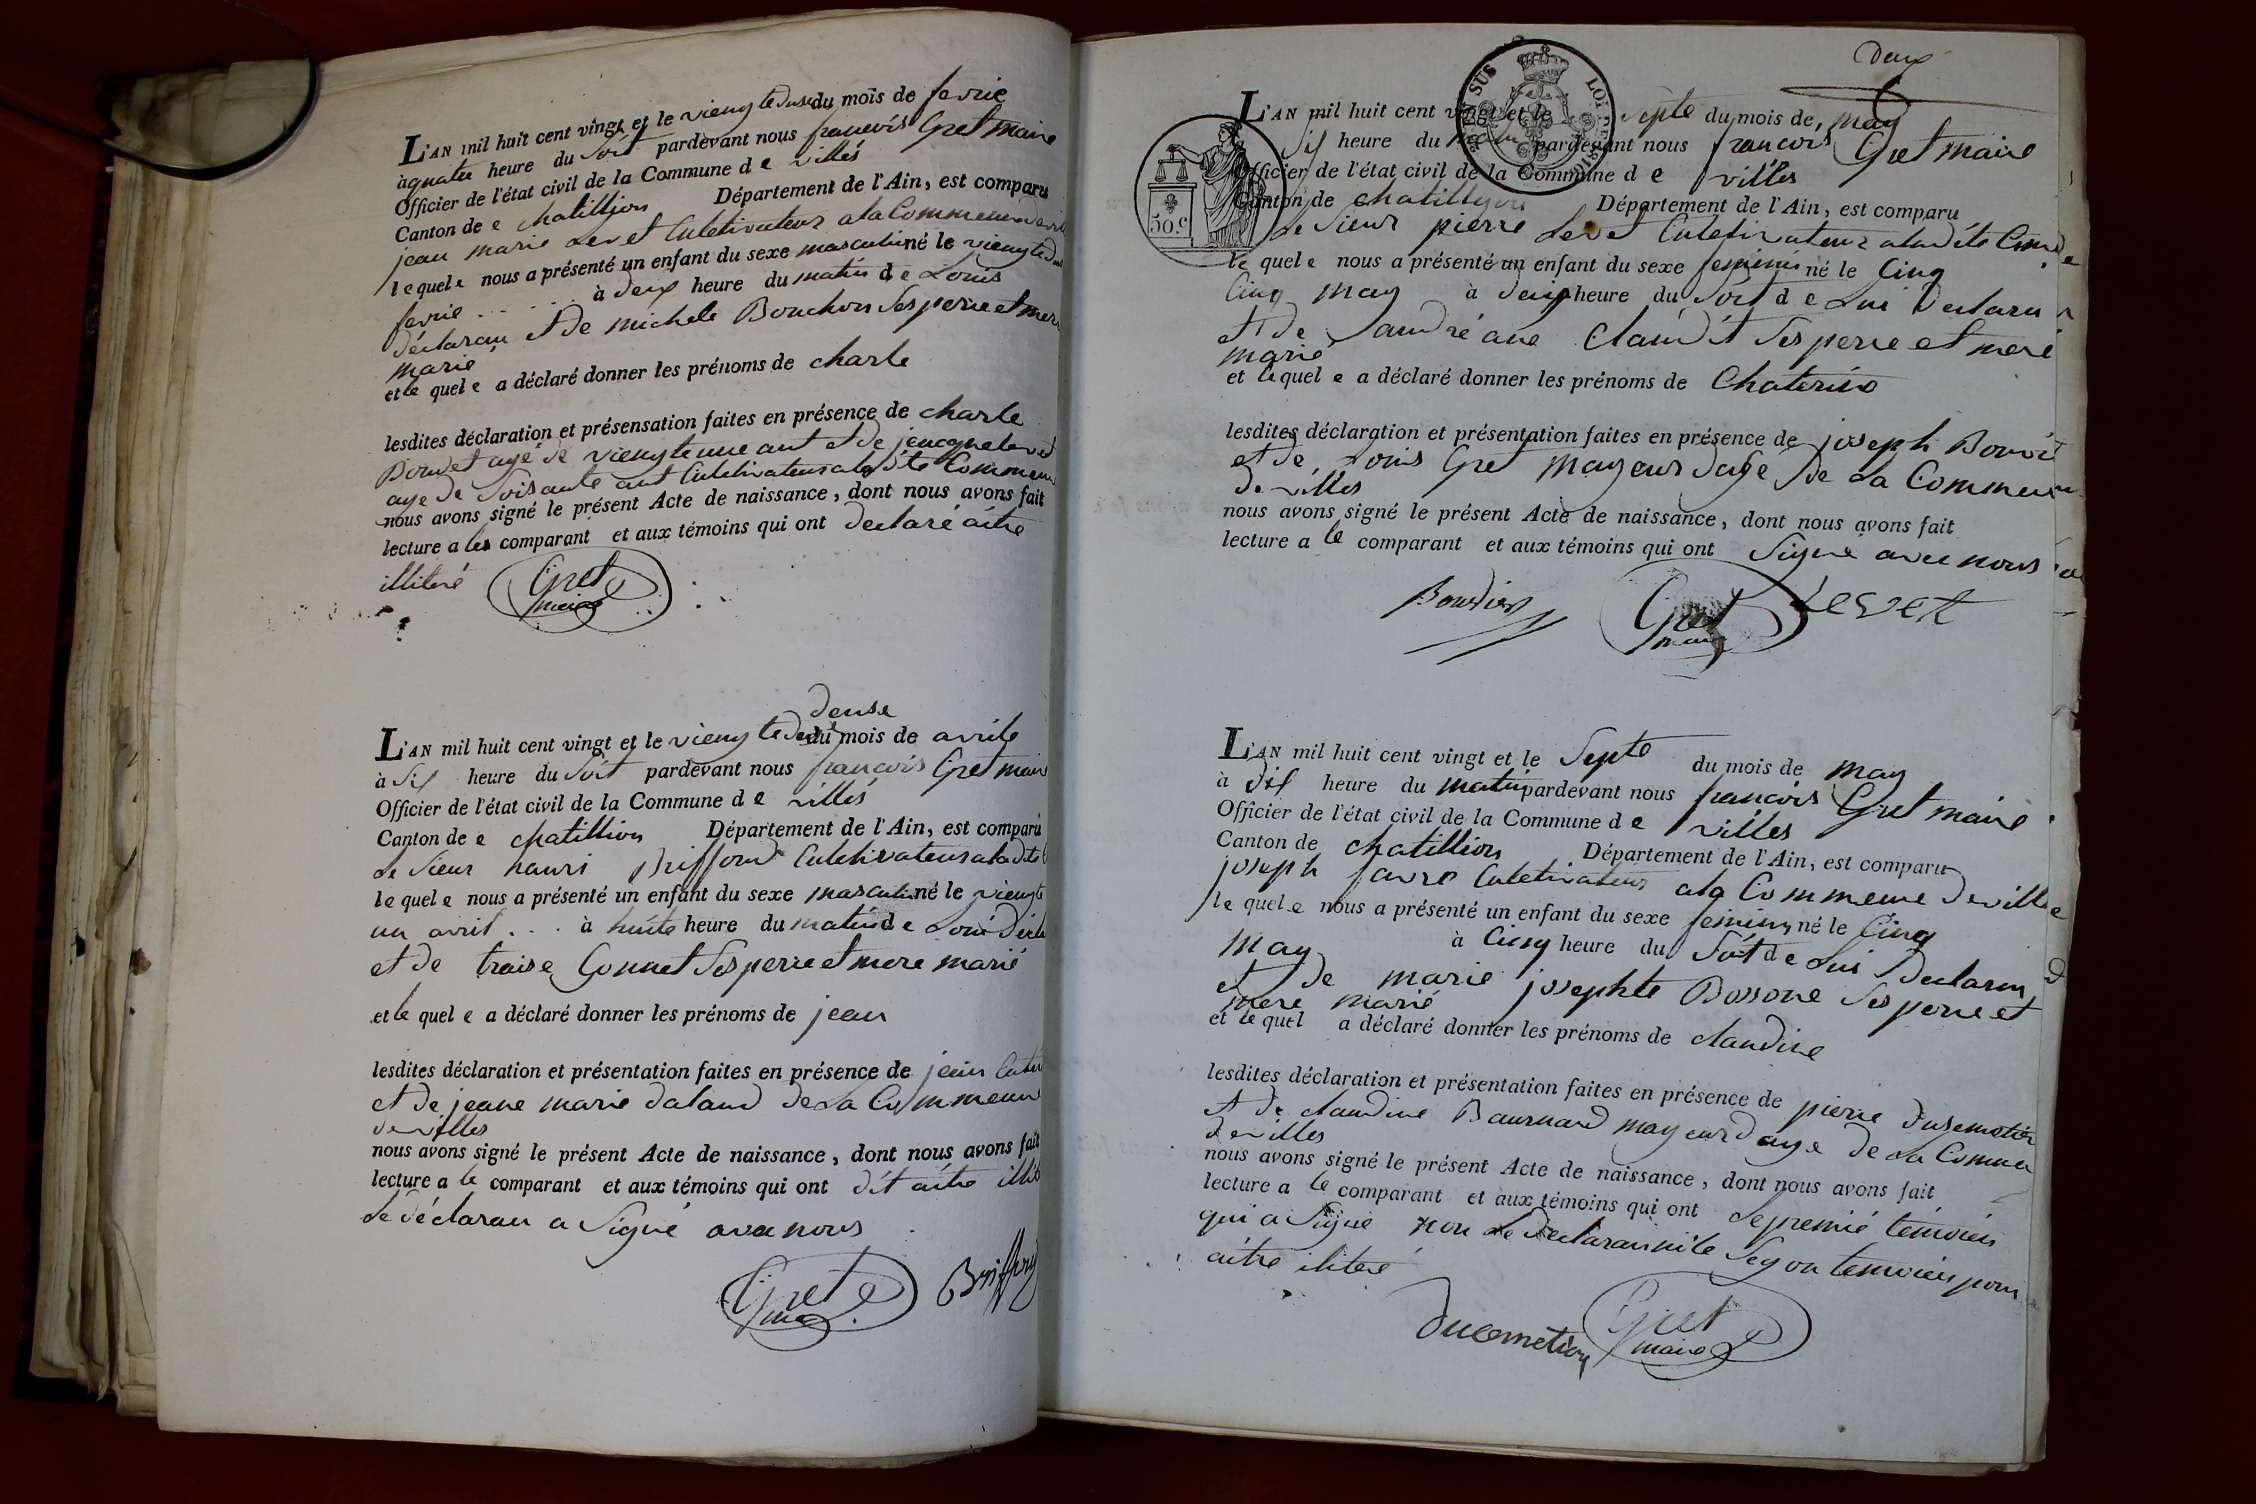 L'AN mil huit cent vingt et le viengtedeuse du mois de fevrie
à quatre heure du Soit pardevant nous francois Gret maire
Officier de l'état civil de la Commune de villes
Canton de chatillion Département de l'Ain, est comparu
jean marie Levet Culetivateur a la Commeune
lequele nous a présenté un enfant du sexe masculin né le viengte
fevrie ... à deux heure du matin de Louis
déclaran et de michele Bouchon Ses perre et mere
marié
et le quele a déclaré donner les prénoms de charle
lesdites déclaration et présensation faites en présence de charle
Boudet agé de viengteune ant et de
age de Soisante ant Culetivateur a la dite Commeun
nous avons signé le présent Acte de naissance, dont nous avons fait
lecture a les comparant et aux témoins qui ont declaré aitre
illiteré Gret
maire
deuse
L'AN mil huit cent vingt et le viengte du mois de avrile
à Six heure du Soit pardevant nous francois Gret maire
Officier de l'état civil de la Commune de villes
Canton de chatillion Département de l'Ain, est comparu
Le Sieur hanri Briffond Culetivateur a la dite
lequele nous a présenté un enfant du sexe masculin né le viengte
un avril ... à huite heure du matin de
et de traise Gonnet Ses perre et mere marié
et le quel e a déclaré donner les prénoms de jean
lesdites déclaration et présentation faites en présence de jean
et de jeane marie daland de La Commeune
de villes
nous avons signé le présent Acte de naissance, dont nous avons fait
lecture a le comparant et aux témoins qui ont dit aitre
Le déclaran a Signé avec nous
Gret
maire
deux
L'AN mil huit cent vingt et le Septe du mois de may
Six heure du pardevant nous francois Gret maire
Officier de l'état civil de la Commune de villes
Canton de chatillion Département de l'Ain, est comparu
Le Sieur pierre Levet Culetivateur a la dite
le quel e nous a présenté un enfant du sexe feminin né le Cinq
Cinq may à deux heure du Soit de Lui Declaran
et de andré ane Claudit Ses perre et mere
marié
et le quel e a déclaré donner les prénoms de Chaterine
lesdites déclaration et présentation faites en présence de joseph
et de Louis Gret mayeur dage de La Commeun
de villes
nous avons signé le présent Acte de naissance, dont nous avons fait
lecture a le comparant et aux témoins qui ont Signé avec nous
50.c
Gret Levet
maire
L'AN mil huit cent vingt et le Septe du mois de may
à dix heure du matin pardevant nous francois Gret maire
Officier de l'état civil de la Commune de villes
Canton de chatillion Département de l'Ain, est comparu
joseph favre Culetivateur a la Commeune de ville
le quel e nous a présenté un enfant du sexe feminin né le Cinq
may à Cinq heure du Soit de Lui Declaran
et de marie josephte Bossone Ses perre et
mere marié
et le quel a déclaré donner les prénoms de claudine
lesdites déclaration et présentation faites en présence de pierre
et de claudine Baurnard mayeur dage de La
de villes
nous avons signé le présent Acte de naissance, dont nous avons fait
lecture a le comparant et aux témoins qui ont Le premié temoien
qui a Signé non Le Declaran ni le Segon temoien pour
aitre ilitere
ducometion Gret
maire